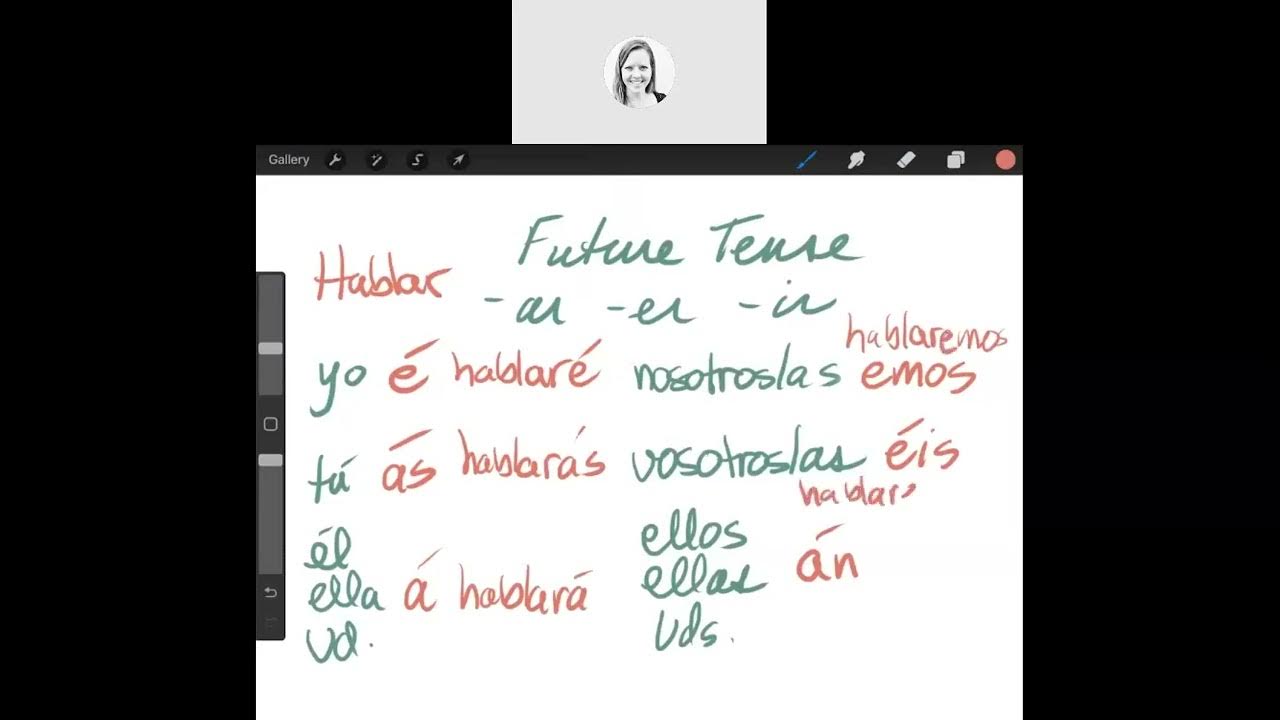 Gallery
Future Tense
Hablar
-ar -er -ir
hablaremos
yo é hablaré nosotros/as emos
tú ás hablarás vosotros/as éis
hablar
él
ella á hablará
Ud.
ellos
ellas án
Uds.